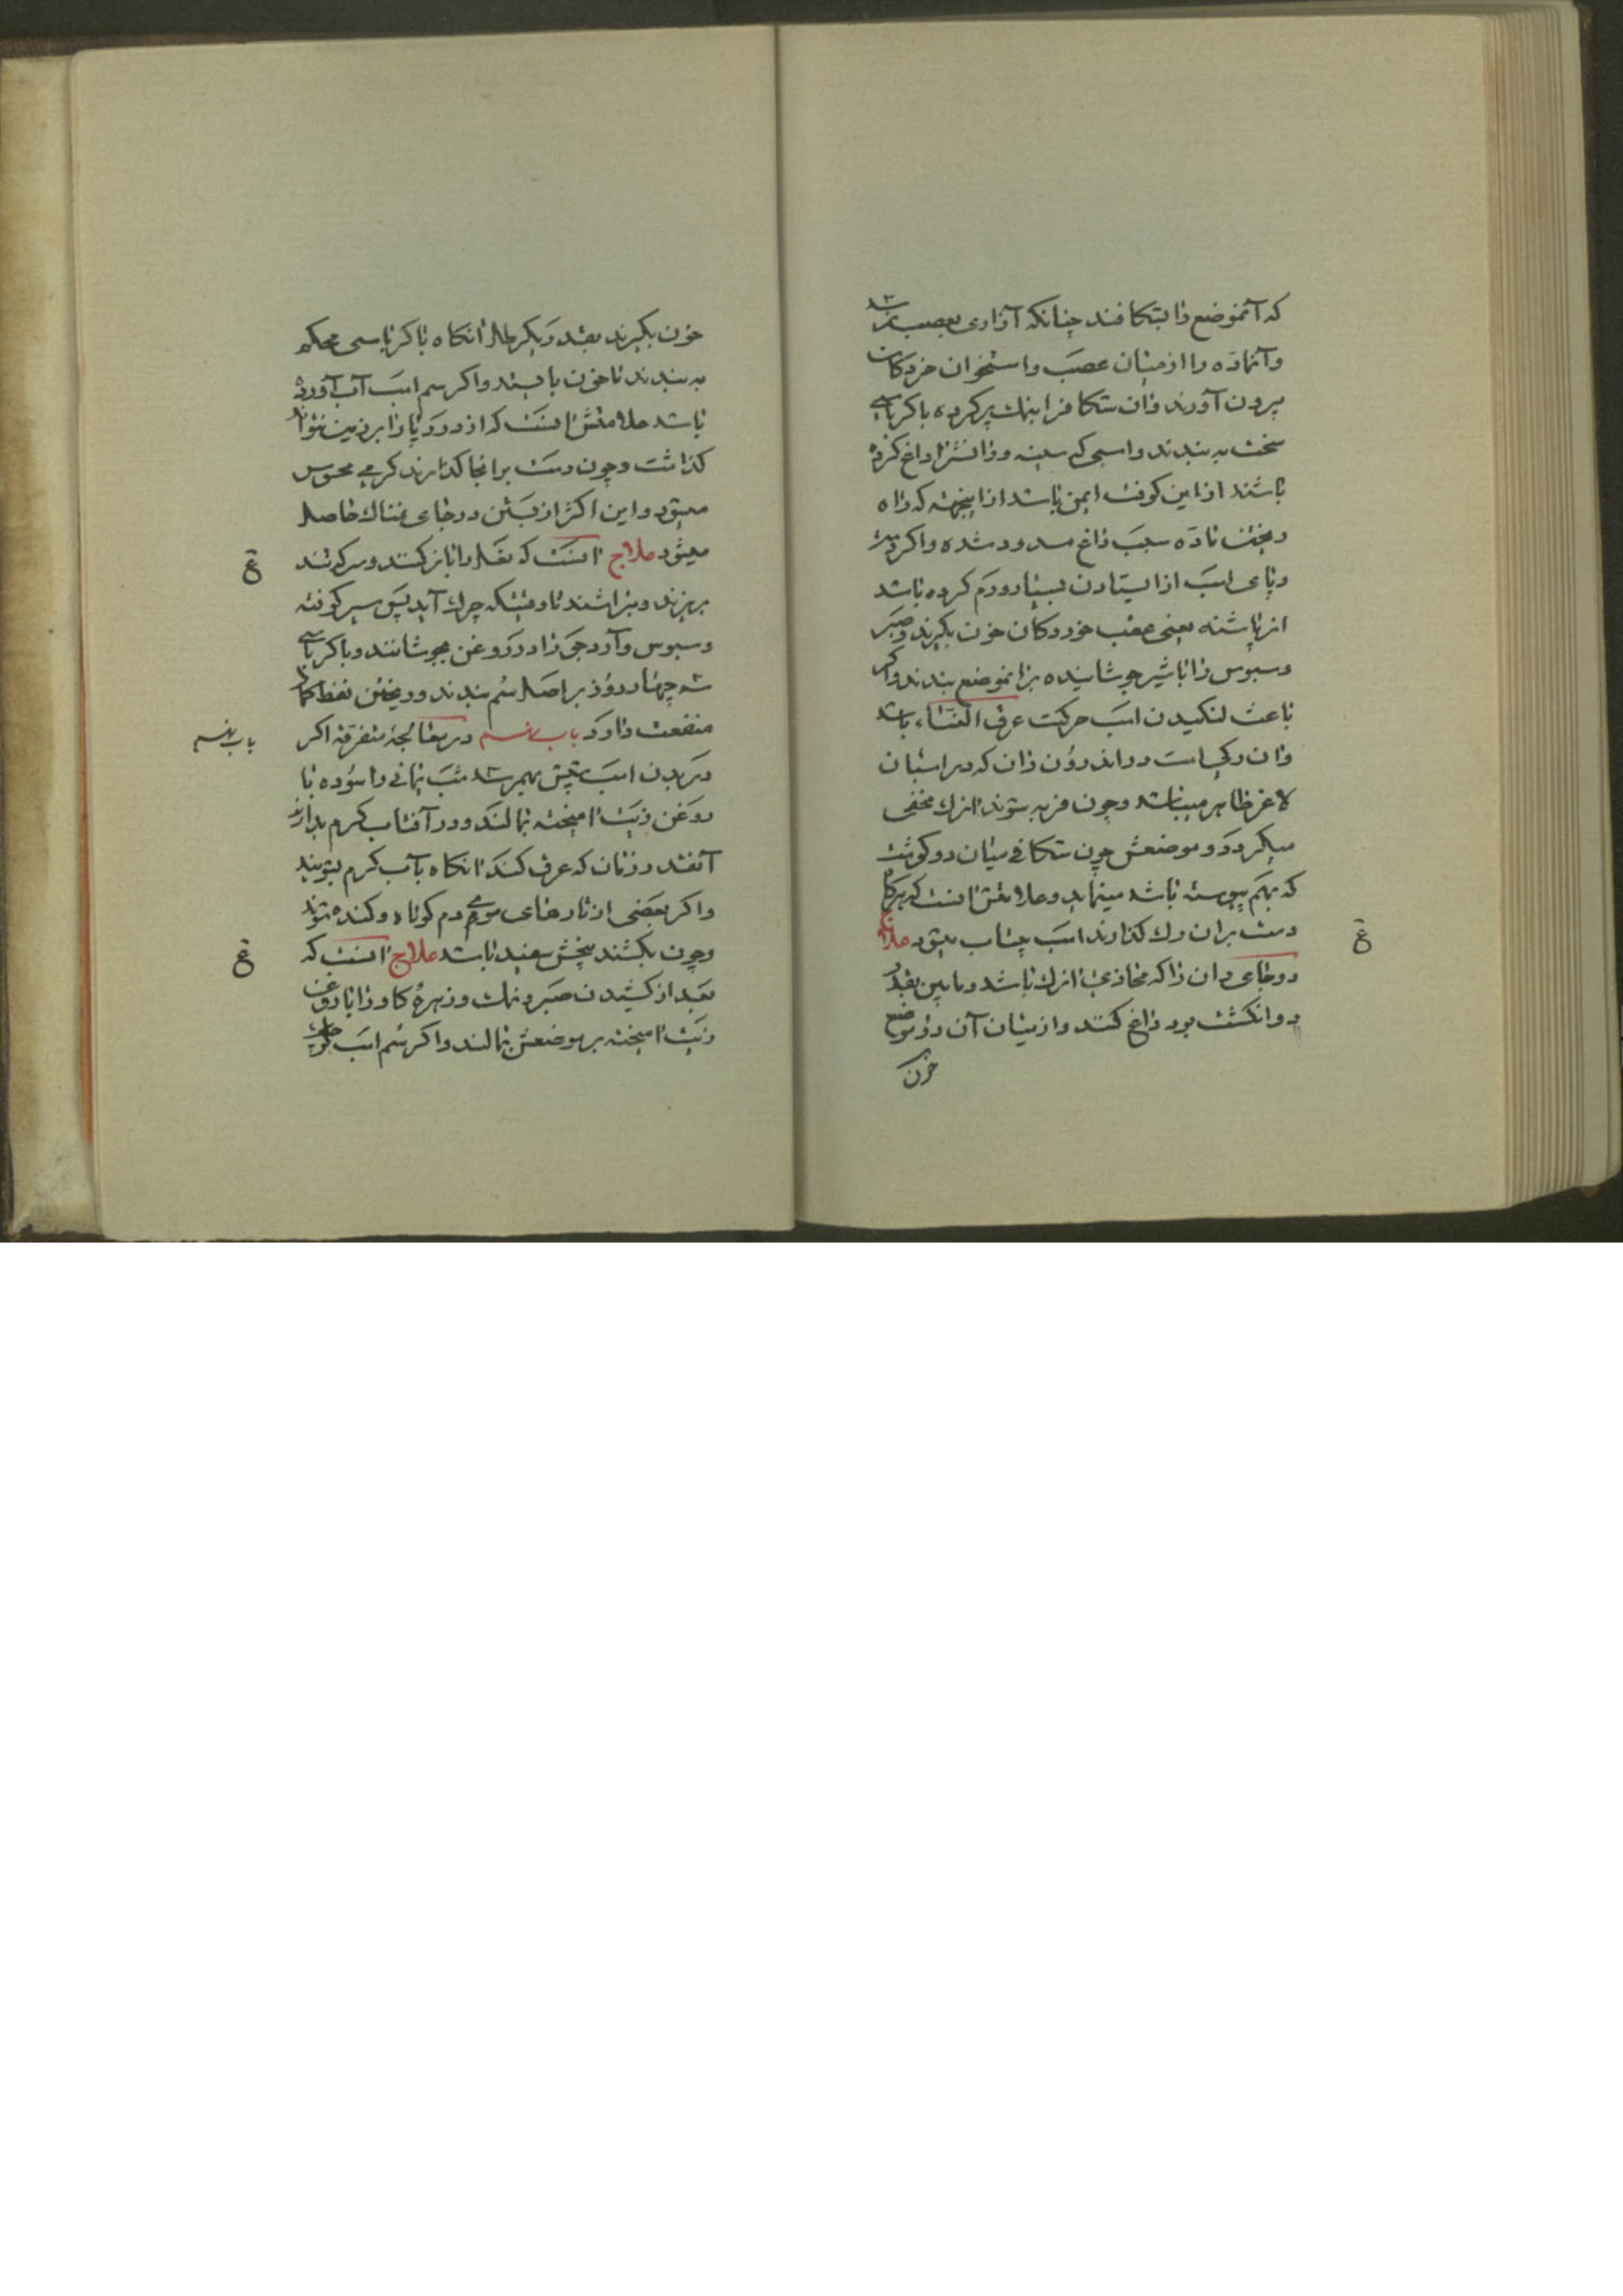 که آنموضع را بشکافند چنانکه آزاری بعصب نرسد
و آنماده را از میان عصب و استخوان خردکان
بیرون آورند و ان شکاف را بنمک پر کرده با کرباسی
سخت به بندند و اسبی که سینه و رانش را داغ کرده
باشند از این کوفت ایمن باشد از اینجهت که راه
ریختن ماده بسبب داغ مسدود شده و اکر دست
و پای اسب از ایستادن بسیار ورم کرده باشد
از پاشنه یعنی عقب خوردکان خون بکیرند و صبر
و سبوس را با شیر جوشانیده بر انموضع بندند و اکر
باعث لنکیدن اسب حرکت عرق النساء باشد
و ان رکی است در اندرون ران که در اسبان
لاغر ظاهر میباشد و چون فربه شوند انرک مخفی
میکردد و موضعش چون شکافی میان دو کوشت
که بهم پیوسته باشد مینماید و علامتش انست که هرکاه
دست بران رک کذارند اسب بیتاب میشود علاجش
دو جای ران را که محاذی انرک باشد و مابین بقدر
دو انکشت بود داغ کنند و از میان آن دو موضع
خون
خون بکیرند بقدر یکرطل انکاه با کرباسی محکم
به بندند تا خون بایستد و اکر سم اسب آب آورده
باشد علامتش انست که از درد پا را بر زمین نتواند
کذاشت و چون دست برانجا کذارند کرمی محسوس
میشود و این اکثر از بستن در جای نمناک حاصل
میشود علاج انست که نعل را باز کنند و سرکه تند
بریزند و بتراشند تا وقتیکه چرک آید پس سیر کوفته
و سبوس و آرد جو را در روغن بجوشانند و با کرباسی
سه چهار روز بر اصل سم بندند و ریختن نفط
منفعت دارد باب در معالجه متفرقه اکر
در بدن اسب شپش بهمرسد شب یمانی را سوده با
روغن زیت امیخته بمالند و در آفتاب کرم بدارند
آنقدر زمان که عرق کند انکاه بآب کرم بشویند
و اکر بعضی از تارهای موی دم کوتاه و کنده شوند
و چون بکشند بیخش سفید باشد علاج انست که
بعد از کشیدن صبر و نمک و زهره کاو را با روغن
زیت امیخته بر موضعش بمالند و اکر سم اسب